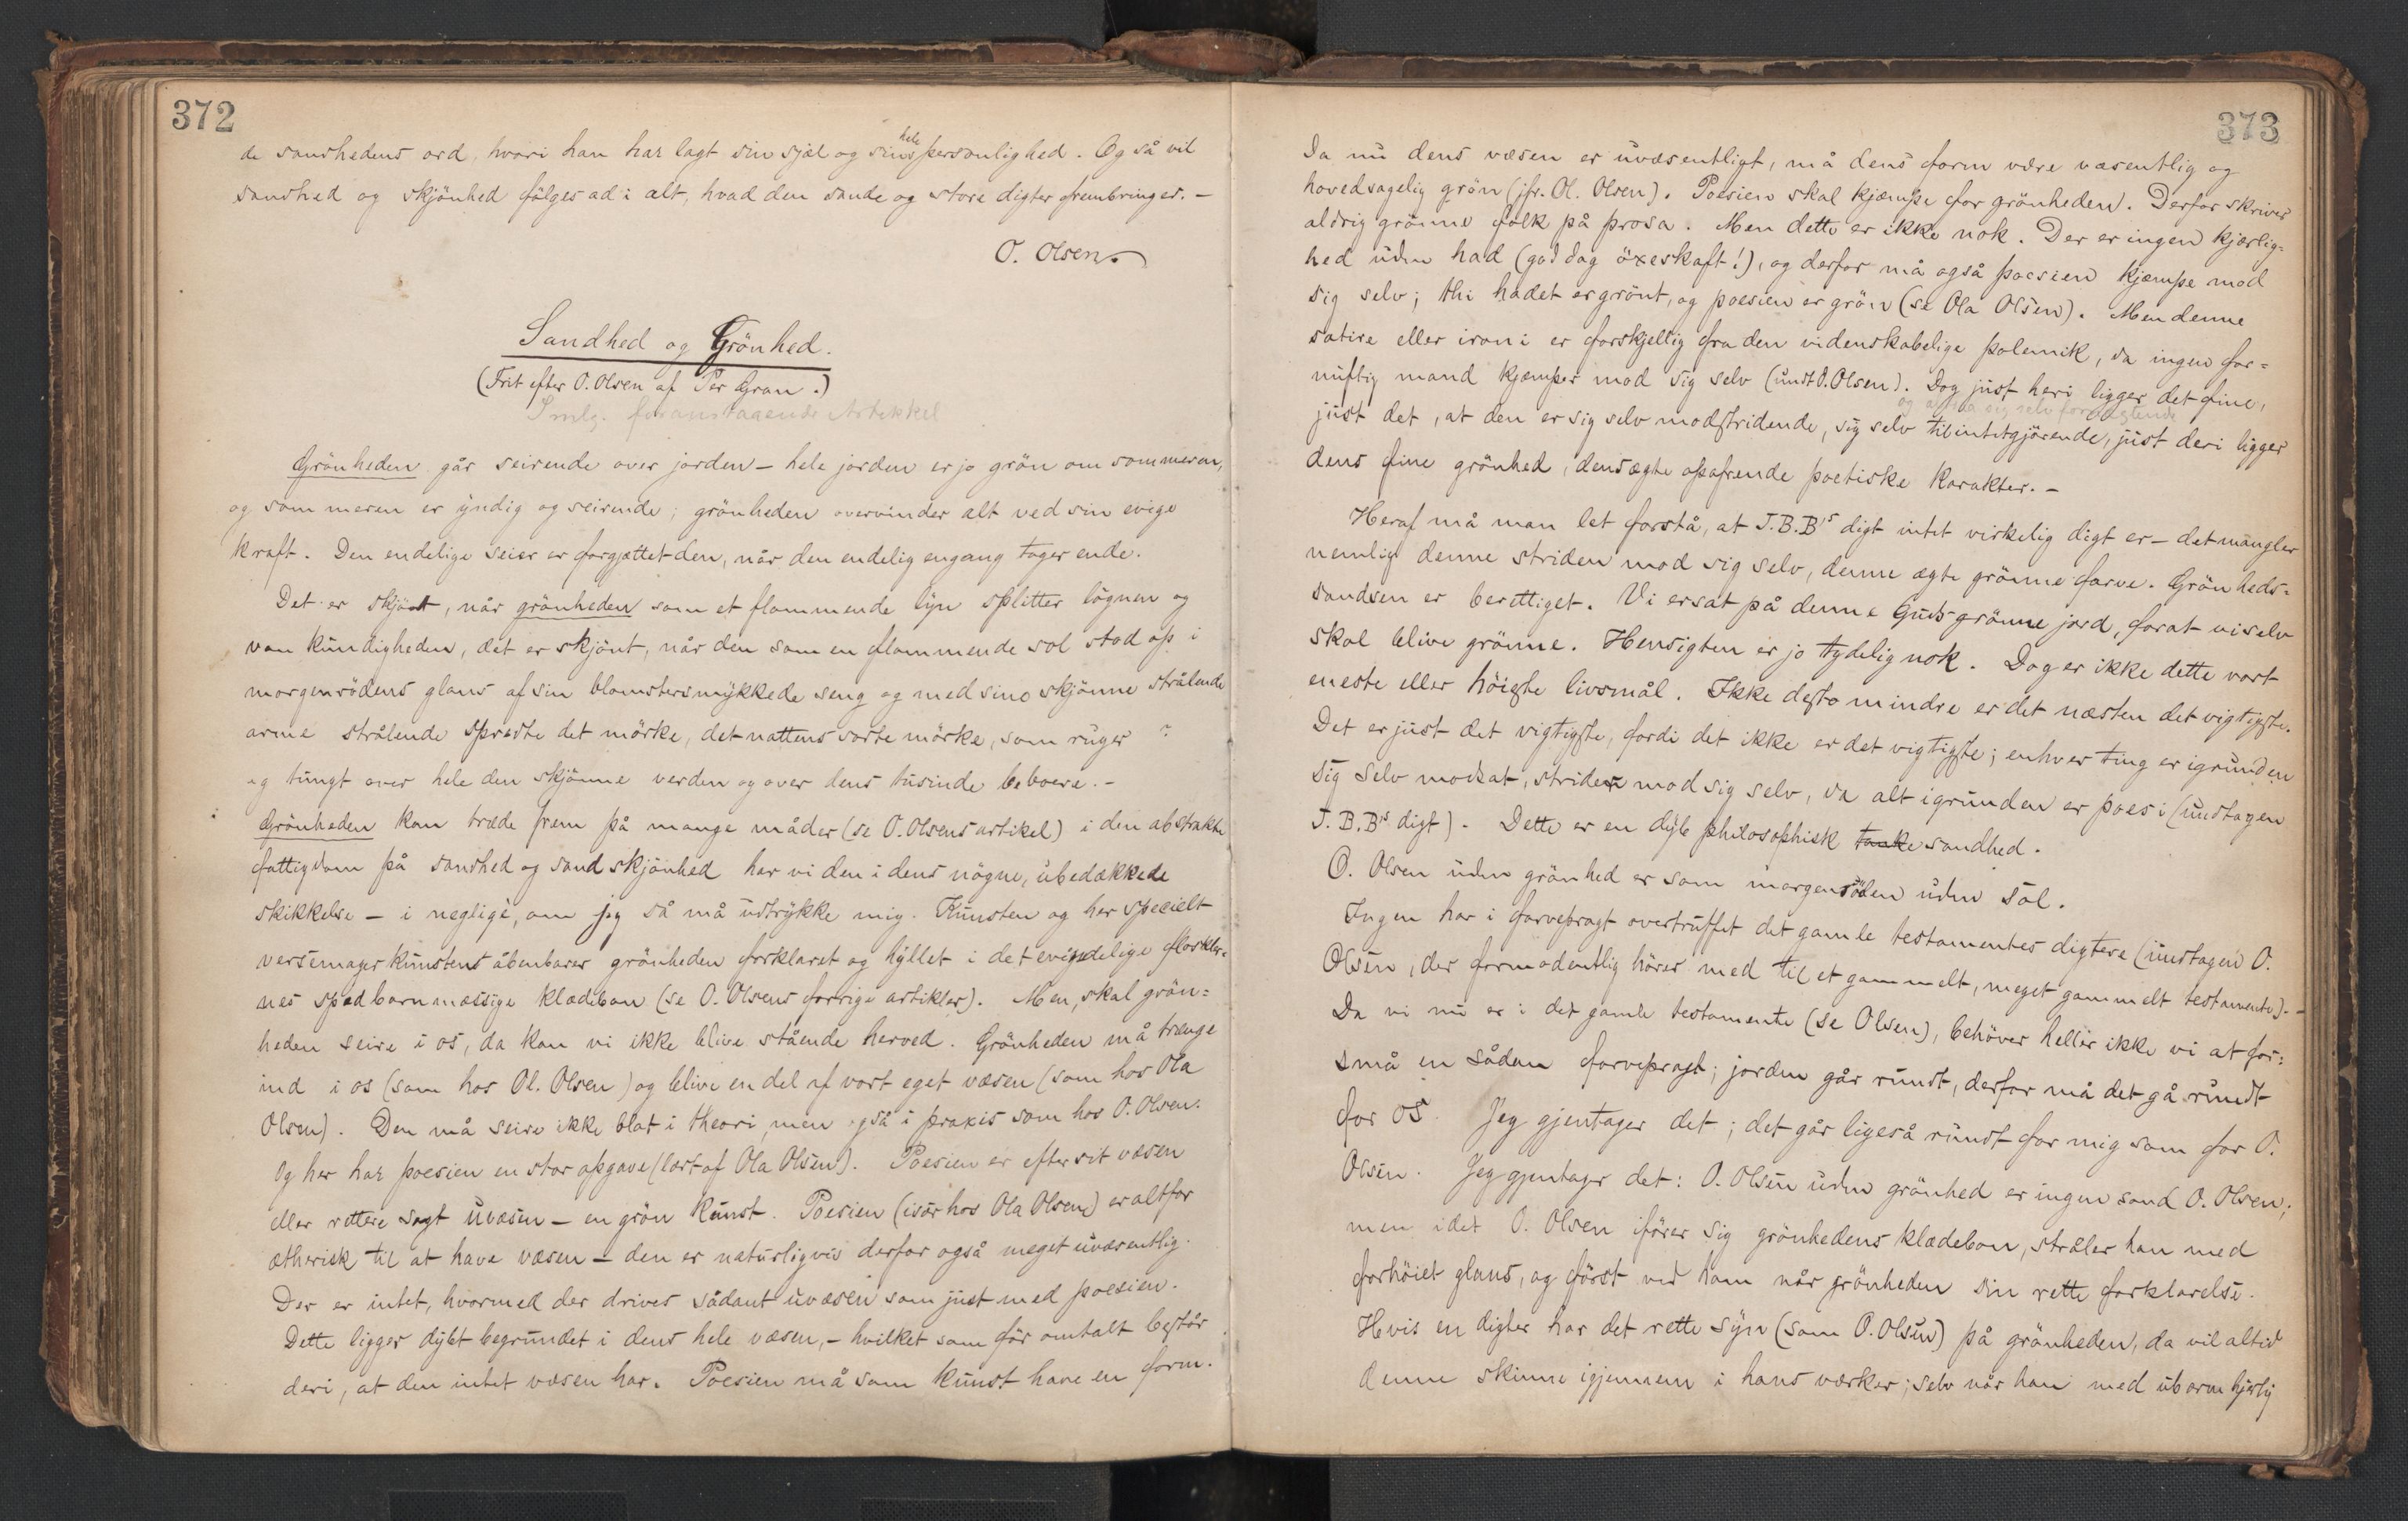 372
de sandhedens ord, hvori han har lagt sin sjæl og sin hele personlighed. Og så vil
sandhed og skjönhed fölges ad i alt, hvad den sande og store digter frembringer. –
O. Olsen.
Sandhed og Grönhed.
(Frit efter O. Olsen af Per Gran.)
Smlg. foranstaaende Artikkel
Grönheden går seirende over jorden – hele jorden er jo grön om sommeren,
og sommeren er yndig og seirende; grönheden overvinder alt ved sin evige
kraft. Den endelige seier er forgjættet den, når den endelig engang tager ende.
Det er skjönt, når grönheden som et flammende lyn splitter lögnen og
vankundigheden, det er skjönt, når den som en flammende sol stod op i
morgenrödens glans af sin blomstersmykkede seng og med sine skjönne strålende
arme strålende spredte det mörke, det nattens sorte mörke, som ruger
og tungt over hele den skjönne verden og over dens tusinde beboere. –
Grönheden kan træde frem på mange måder (se O. Olsens artikel) i den abstrakte
fattigdom på sandhed og sand skjönhed har vi den i dens nögne, ubedækkede
skikkelse – i negligé, om jeg så må udtrykke mig. Kunsten og her specielt
versemagerkunstens åbenbarer grönheden forklaret og hyllet i det evindelige floskler=
nes spædbarnmæssige klædebon (se O. Olsens forrige artikler). Men, skal grön=
heden seire i os, da kan vi ikke blive stående herved. Grönheden må trænge
ind i os (som hos Ol. Olsen) og blive en del af vort eget væsen (som hos Ola
Olsen). Den må seire ikke blot i theori, men også i praxis som hos O. Olsen.
Og her har poesien en stor opgave (lært af Ola Olsen). Poesien er efter sit væsen
eller rettere sagt uvæsen – en grön kunst. Poesien (især hos Ola Olsen) er altfor
ætherisk til at have væsen – den er naturligvis derfor også meget uvæsentlig.
Der er intet, hvormed der drives sådant uvæsen som just med poesien.
Dette ligger dybt begrundet i dens hele væsen, – hvilket som för omtalt består
deri, at den intet væsen har. Poesien må som kunst have en form.
373
Da nu dens væsen er uvæsentligt, må dens form være væsentlig og
hovedsagelig grön (jfr. Ol. Olsen). Poesien skal kjæmpe for grönheden. Derfor skriver
aldrig grönne folk på prosa. Men dette er ikke nok. Der er ingen kjærlig=
hed uden had (god dag öxeskaft!), og derfor må også poesien kjæmpe mod
sig selv; thi hadet er grönt, og poesien er grön (se Ola Olsen). Men denne
satire eller ironi er forskjellig fra den videnskabelige polemik, da ingen for=
nuftig mand kjæmper mod sig selv (undt O. Olsen). Dog just heri ligger det fine,
just det, at den er sig selv modstridende, sig selv tilintetgjörende, just deri ligger
dens fine grönhed, dens ægte opofrende poetiske karakter. –
Heraf må man let forstå, at J.B.B's digt intet virkelig digt er – det mangler
nemlig denne striden mod sig selv, denne ægte grönne farve. Grönheds=
sandsen er berettiget. Vi er sat på denne Guds grönne jord, forat vi selv
skal blive grönne. Hensigten er jo tydelig nok. Dog er ikke dette vort
eneste eller höieste livsmål. Ikke desto mindre er det næsten det vigtigste.
Det er just det vigtigste, fordi det ikke er det vigtigste; enhver ting er igrunden
sig selv modsat, strider mod sig selv, da alt igrunden er poesi (undtagen
J.B.B's digt). Dette er en dyb philosophisk tanke sandhed.
O. Olsen uden grönhed er som morgenröden uden sol.
Ingen har i farvepragt overtruffet det gamle testamentes digtere (undtagen O.
Olsen, der formodentlig hörer med til et gammelt, meget gammelt testamente). –
Da vi nu er i det gamle testamente (se Olsen), behöver heller ikke vi at for=
små en sådan farvepragt; jorden går rundt, derfor må det gå rundt
for os. Jeg gjentager det; det går ligeså rundt for mig som for O.
Olsen. Jeg gjentager det: O. Olsen uden grönhed er ingen sand O. Olsen;
men idet O. Olsen iförer sig grönhedens klædebon, stråler han med
forhöiet glans, og först ved ham når grönheden sin rette forklarelse.
Hvis en digter har det rette syn (som O. Olsen) på grönheden, da vil altid
denne skinne igjennem i hans værker; selv når han med ubarmhjertig